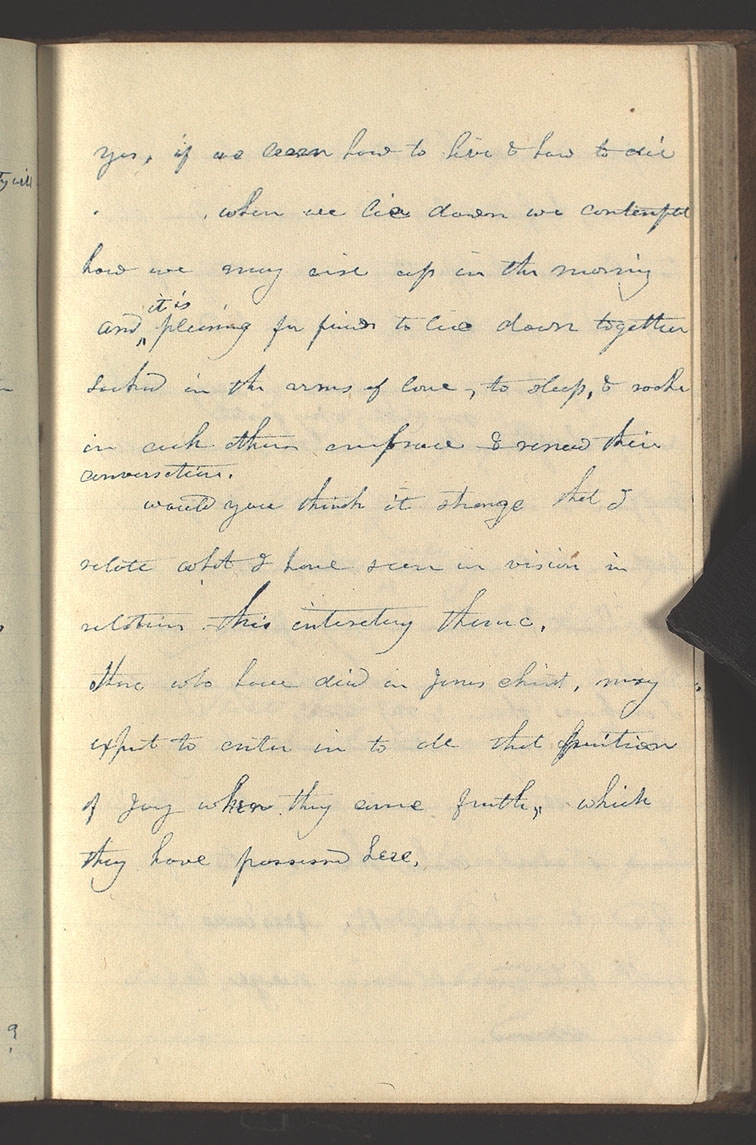 yes, if we learn how to live & how to die
when we lie down we contempl
how we may rise up in the morning
it is
and pleasing for friends to lie down together
locked in the arms of love, to sleep, & wake
in each others embrace & renew their
conversation.
would you think it strange that I
relate what I have seen in vision in
relation this interesting theme.
those who have died in Jesus Christ, may
expect to enter in to all that fruition
of Joy when they come forth, which
they have possessed here.
9